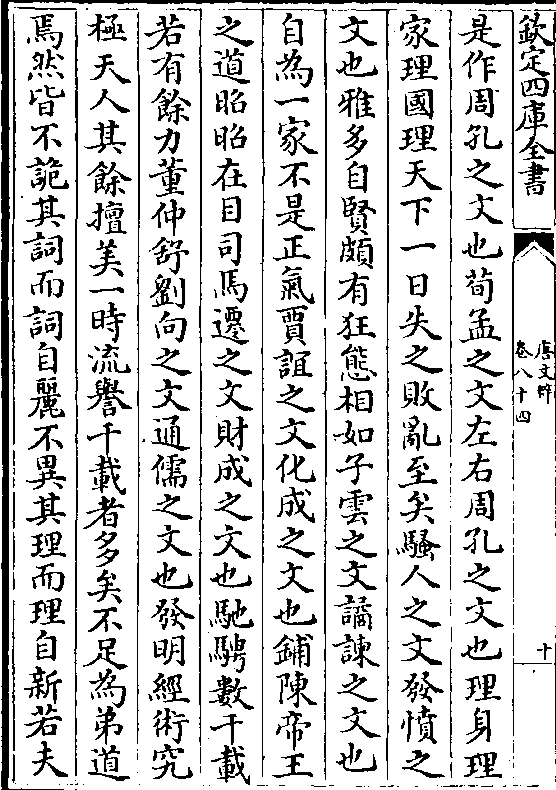 欽定四庫全書
唐文粹
卷八十四
十
是作周孔之文也荀孟之文左右周孔之文也理身理
家理國理天下一日失之敗亂至矣騷人之文發憤之
文也雅多自賢頗有狂態相如子雲之文譎諫之文也
自為一家不是正氣賈誼之文化成之文也鋪陳帝王
之道昭昭在目司馬遷之文財成之文也馳騁數千載
若有餘力董仲舒劉向之文通儒之文也發明經術究
極天人其餘擅美一時流譽千載者多矣不足為弟道
焉然皆不詭其詞而詞自麗不異其理而理自新若夫